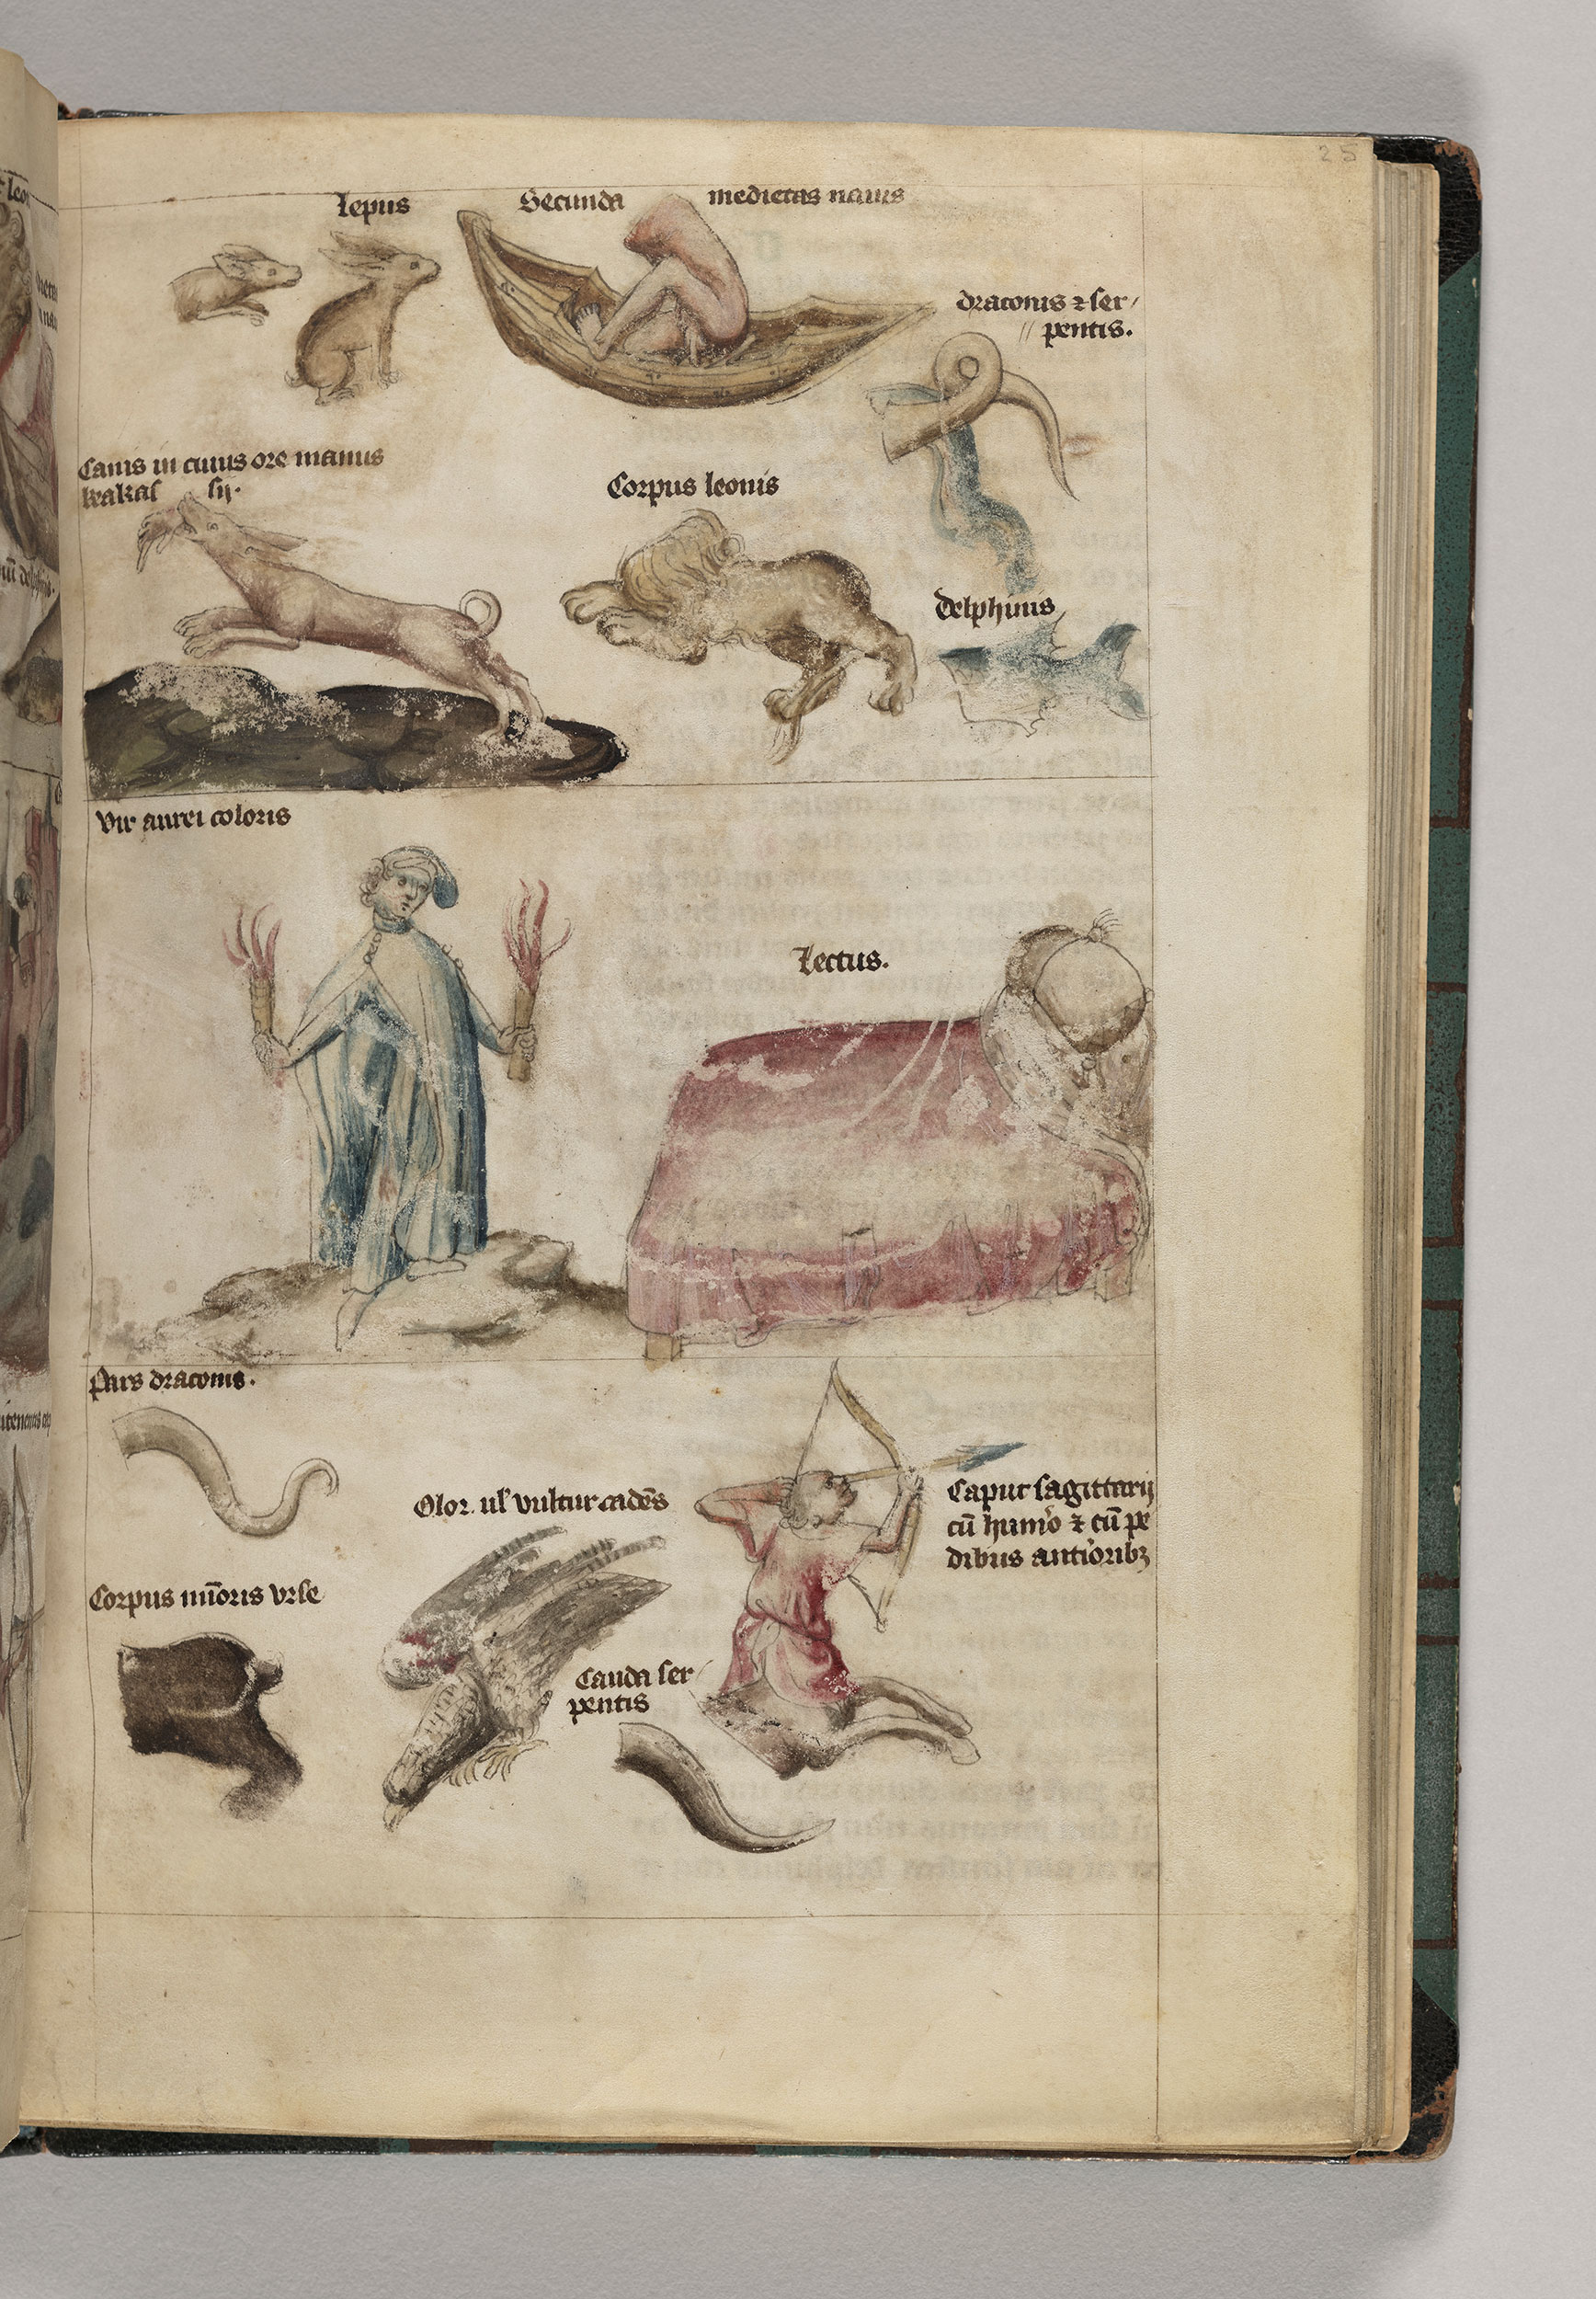 25
lepus
Secunda medietas nauis
draconis ⁊ ser/
pentis.
Canis in cuius ore manus
kakas sy.
Corpus leonis
delphinus
Vir aurei coloris
Lectus.
Pars draconis.
Olor. ul' vultur cadēs
Caput sagittarij
cū hum'o ⁊ cū pe
dibus anti'oribꝫ
Corpus mīoris vrse
Cauda ser/
pentis